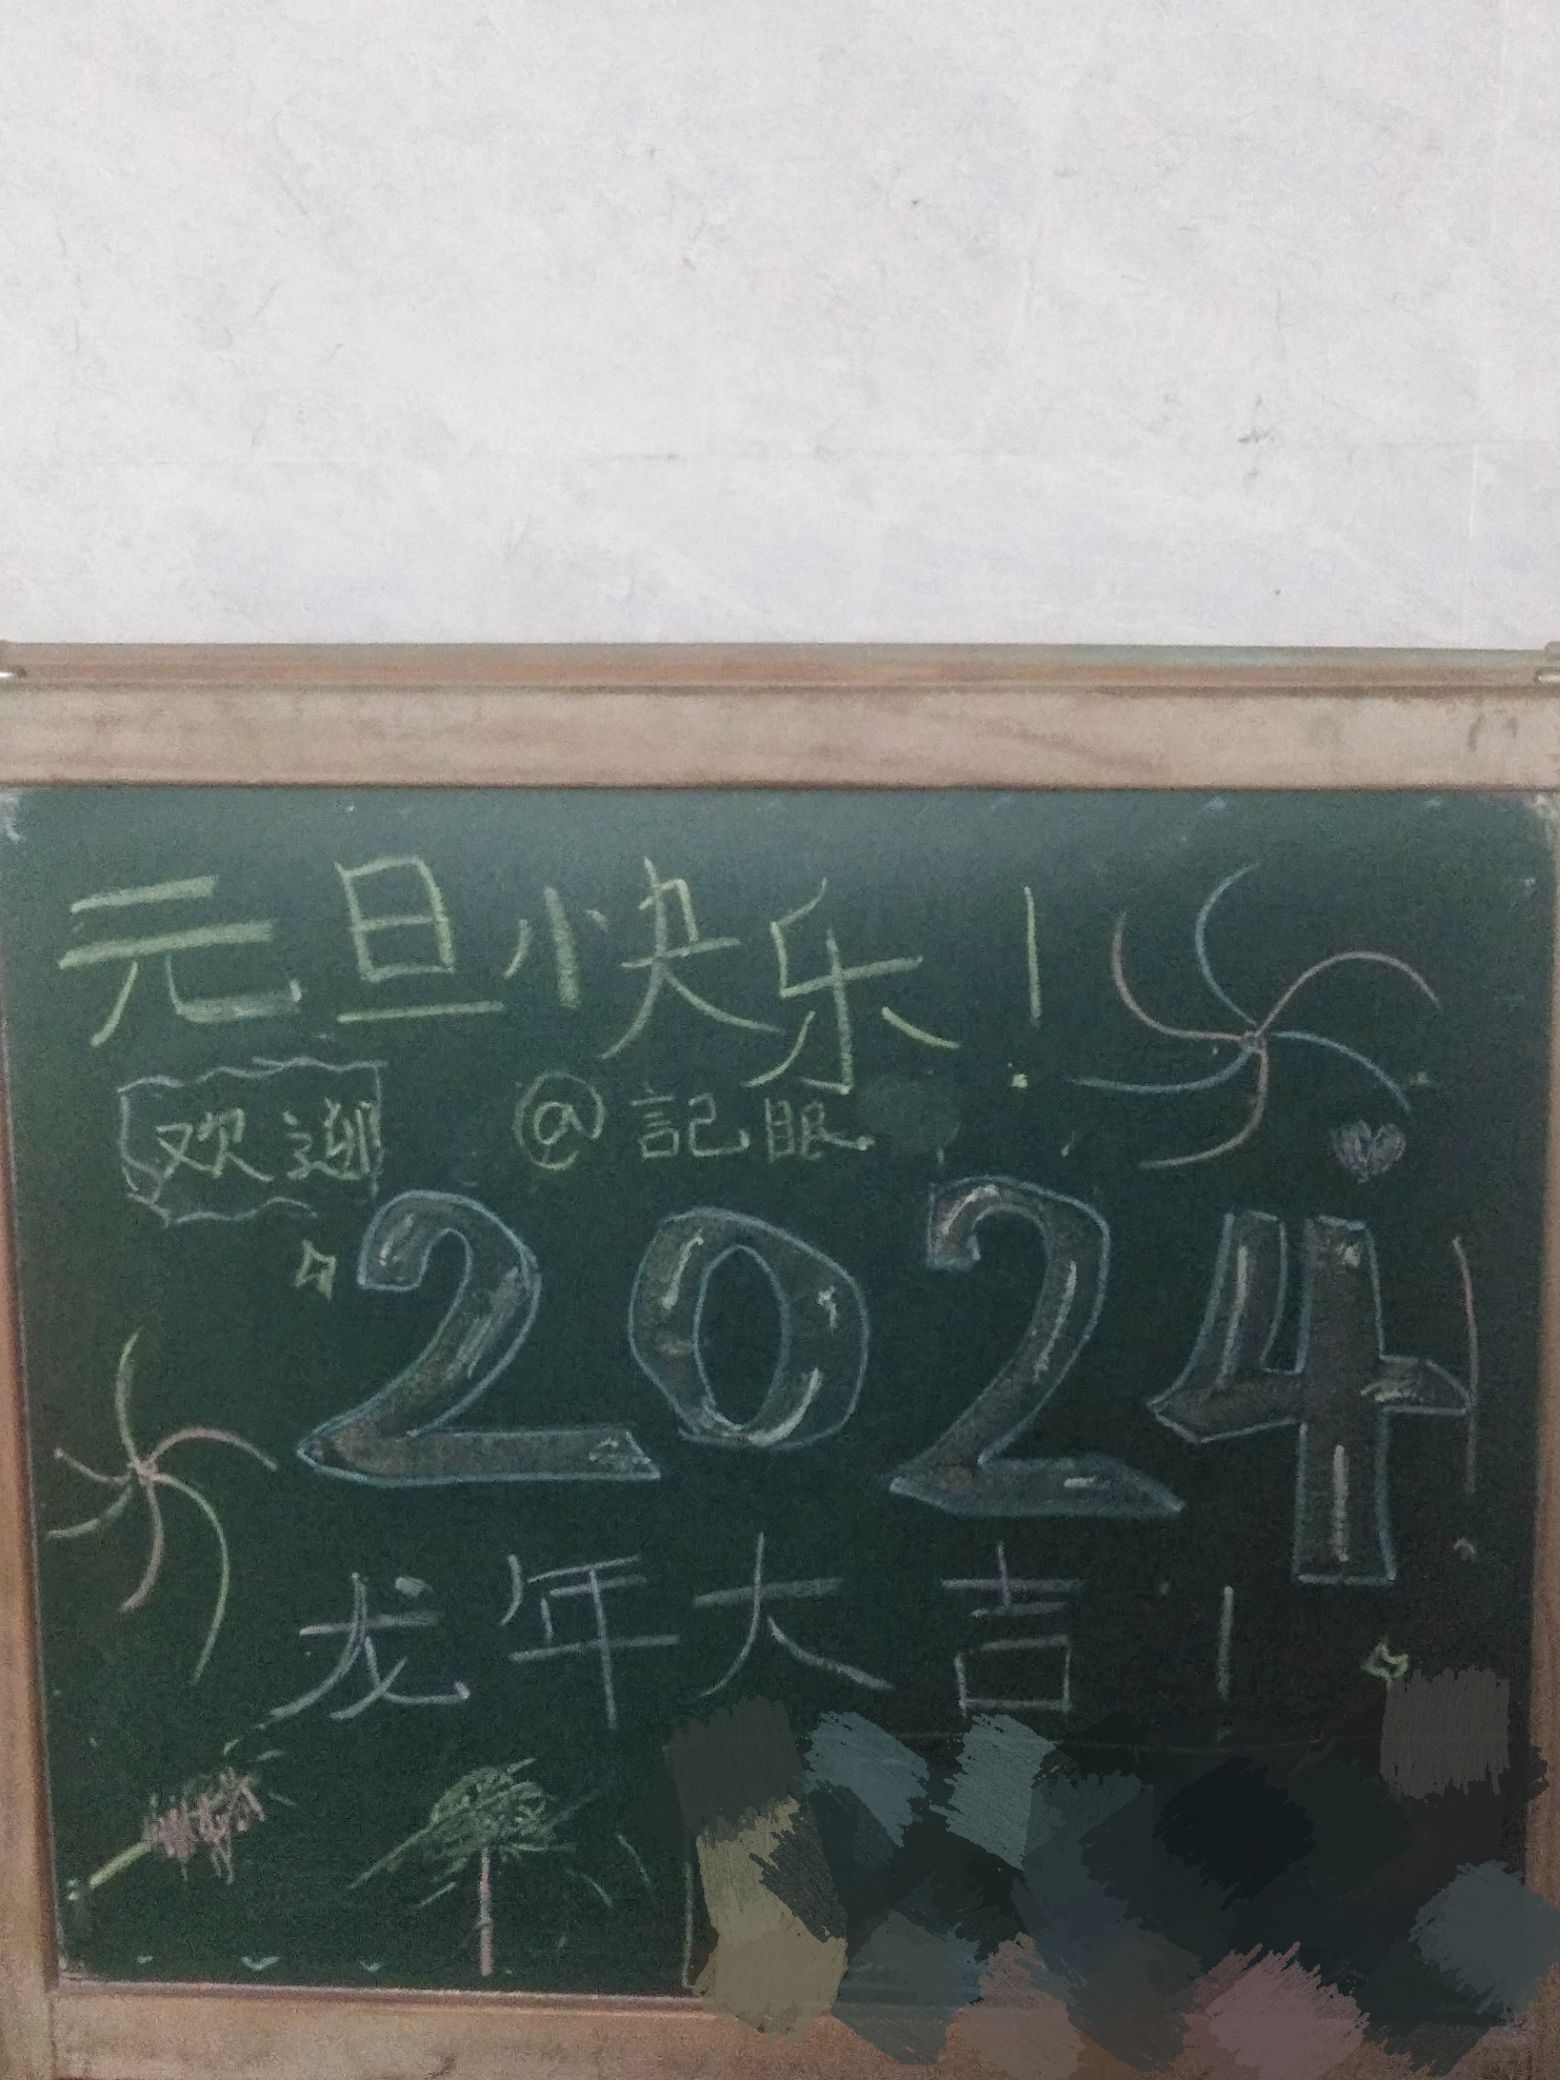 元旦快乐！
欢迎 @記眼
2024
龙年大吉！